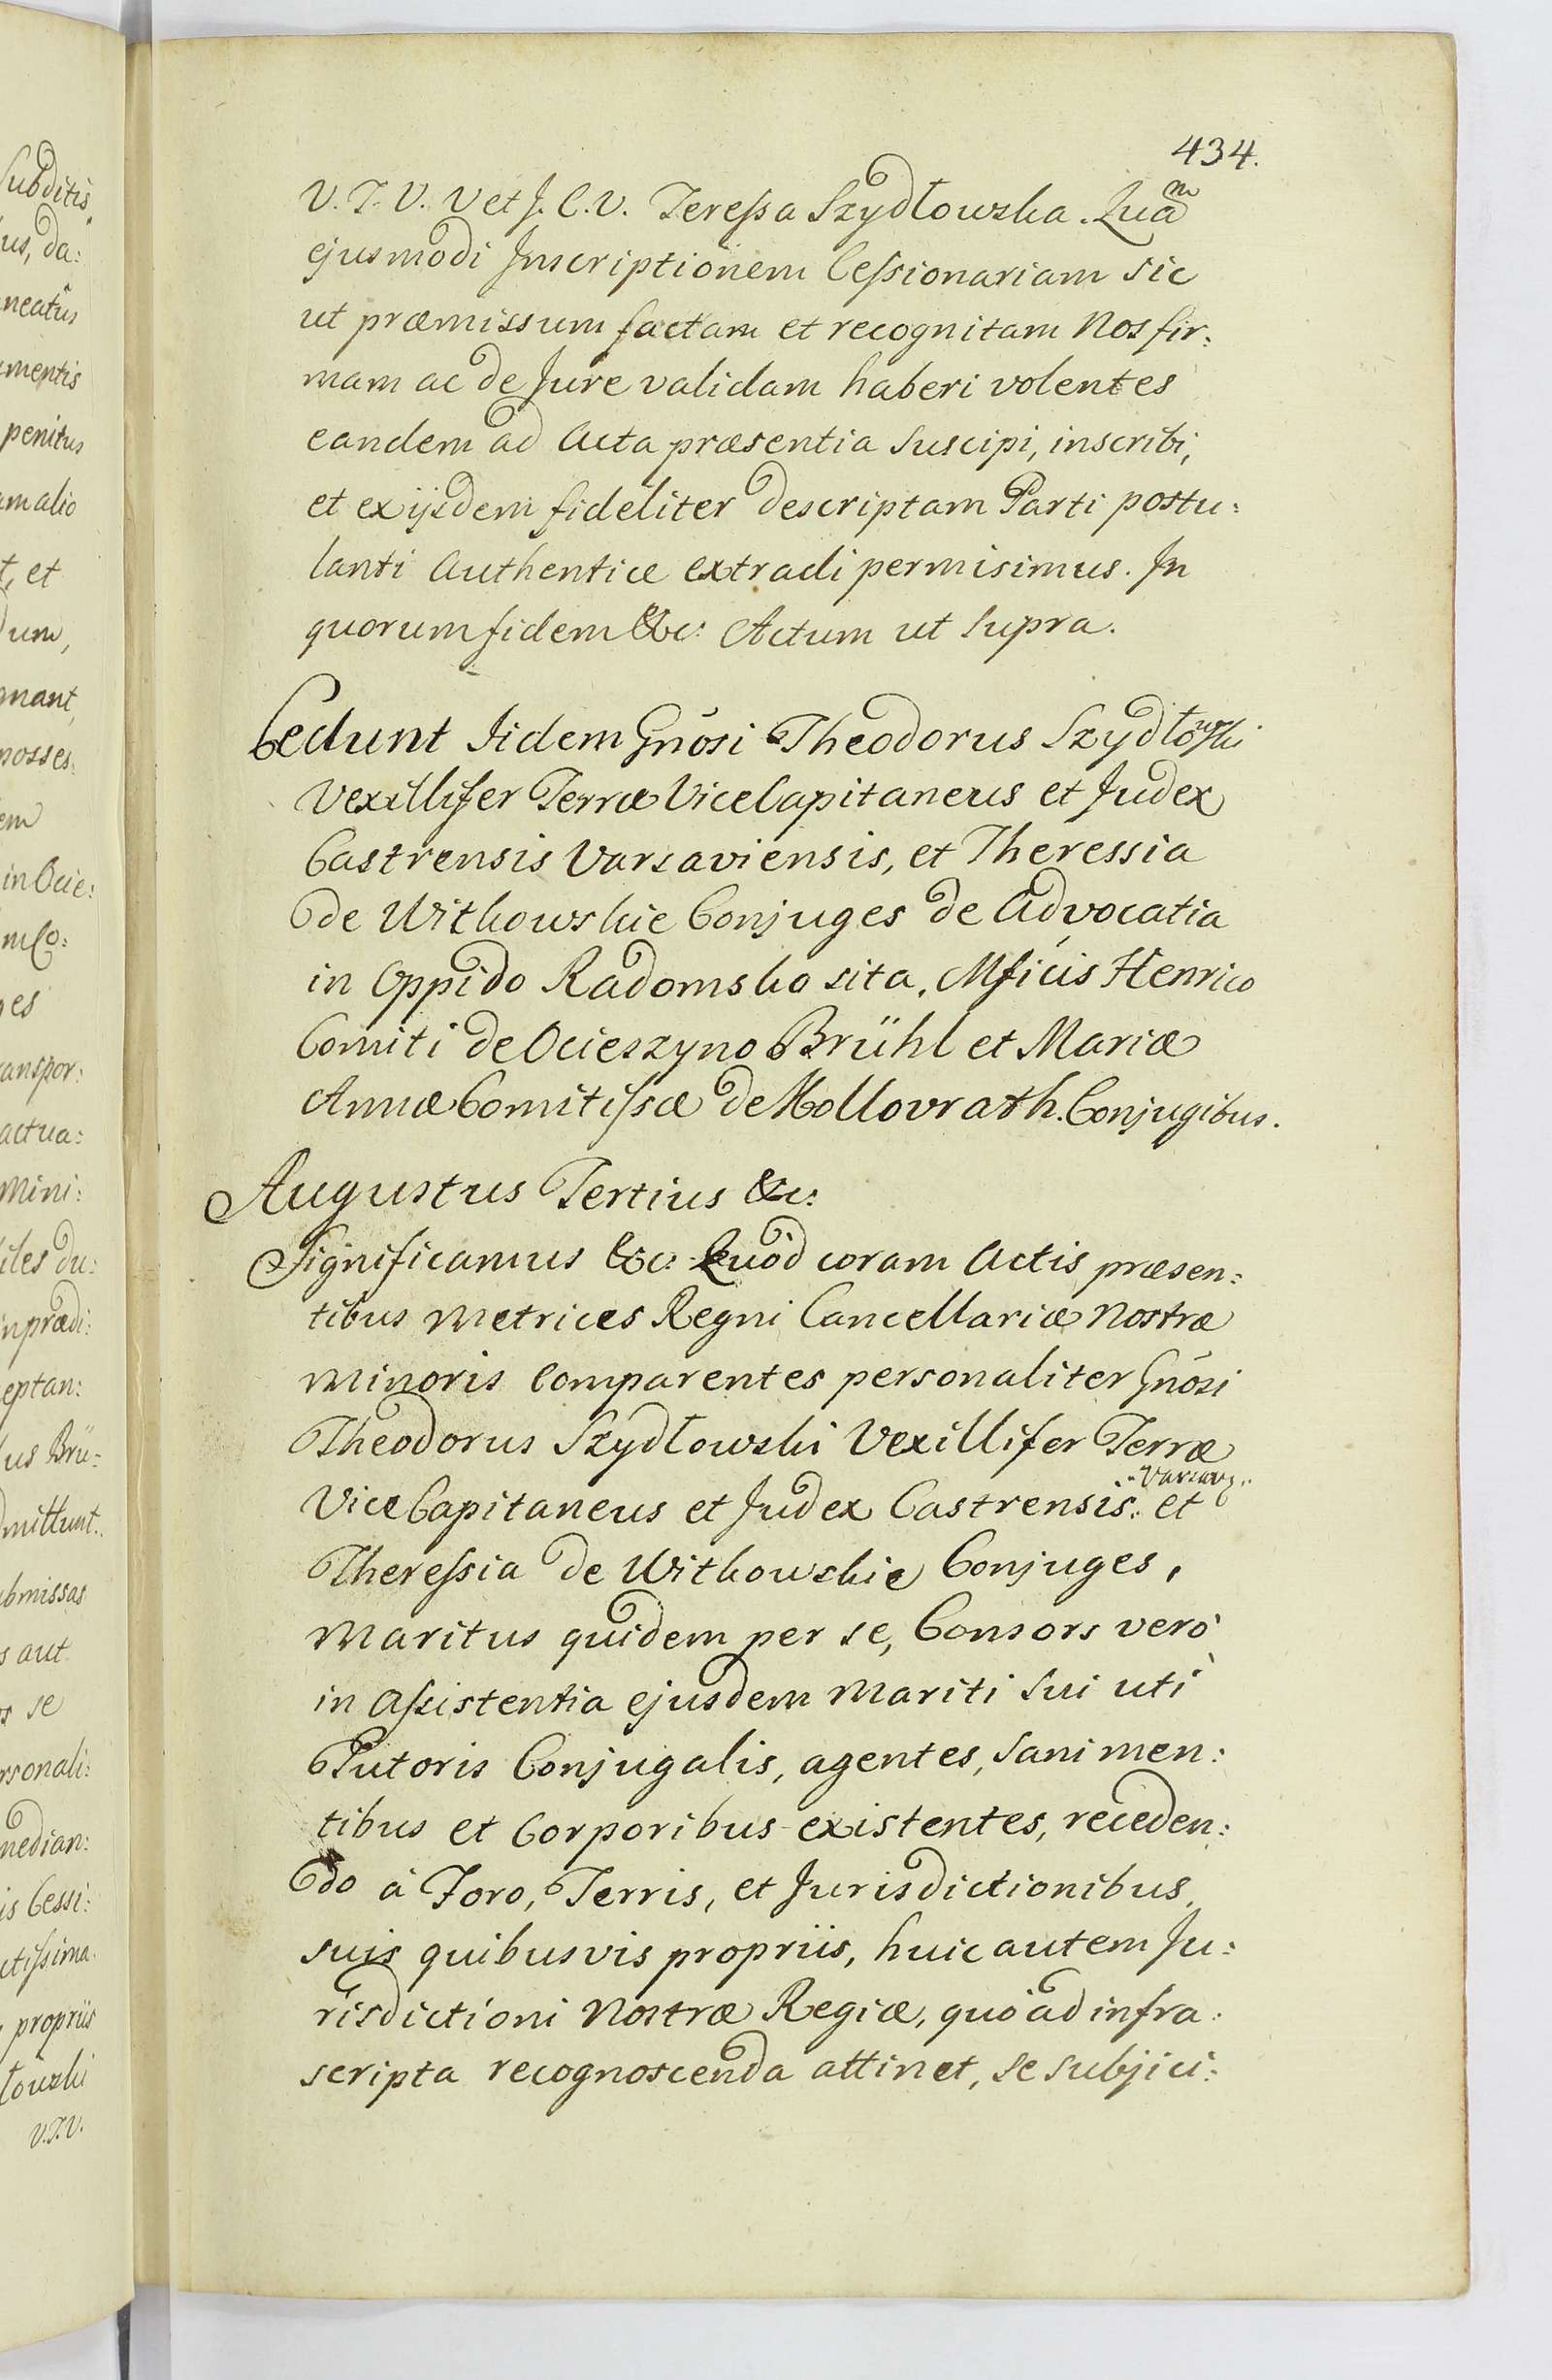 434.
V. T. V. V et J. C. V. Teressa Szydłowska. Quam
ejusmodi Inscriptionem Cessionariam sic
ut præmissum factam et recognitam Nos fir:
mam ac de Jure validam haberi volentes
eandem ad Acta præsentia suscipi, inscribi,
et ex ijsdem fideliter descriptam Parti postu:
lanti Authentice extradi permisimus. In
quorum fidem &c: Actum ut supra.
Cedunt Iidem Gnosi Theodorus Szydłowski
Vexillifer Terræ ViceCapitaneus et Judex
Castrensis Varsaviensis, et Theressia
de Witkowskie Conjuges de Advocatia
in Oppido Radomsko sita, Mficis Henrico
Comiti de Ocieszyno Brühl et Mariæ
Annæ Comitissæ de Kollovrath Conjugibus.
Augustus Tertius &c:
Significamus &c: Quòd coram Actis præsen:
tibus Metrices Regni Cancellariæ Nostræ
Minoris Comparentes personaliter Gnosi
Theodorus Szydłowski Vexillifer Terræ
Vice Capitaneus et Judex Castrensis Varsav: et
Theressia de Witkowskie Conjuges,
Maritus quidem per se, Consors verò
in Assistentia ejusdem Mariti sui uti
Tutoris Conjugalis, agentes, sani men:
tibus et Corporibus existentes, receden:
do à Foro, Terris, et Jurisdictionibus
suis quibusvis propriis, huic autem Ju:
risdictioni Nostræ Regiæ, quò ad infra:
scripta recognoscenda attinet, se subjici: